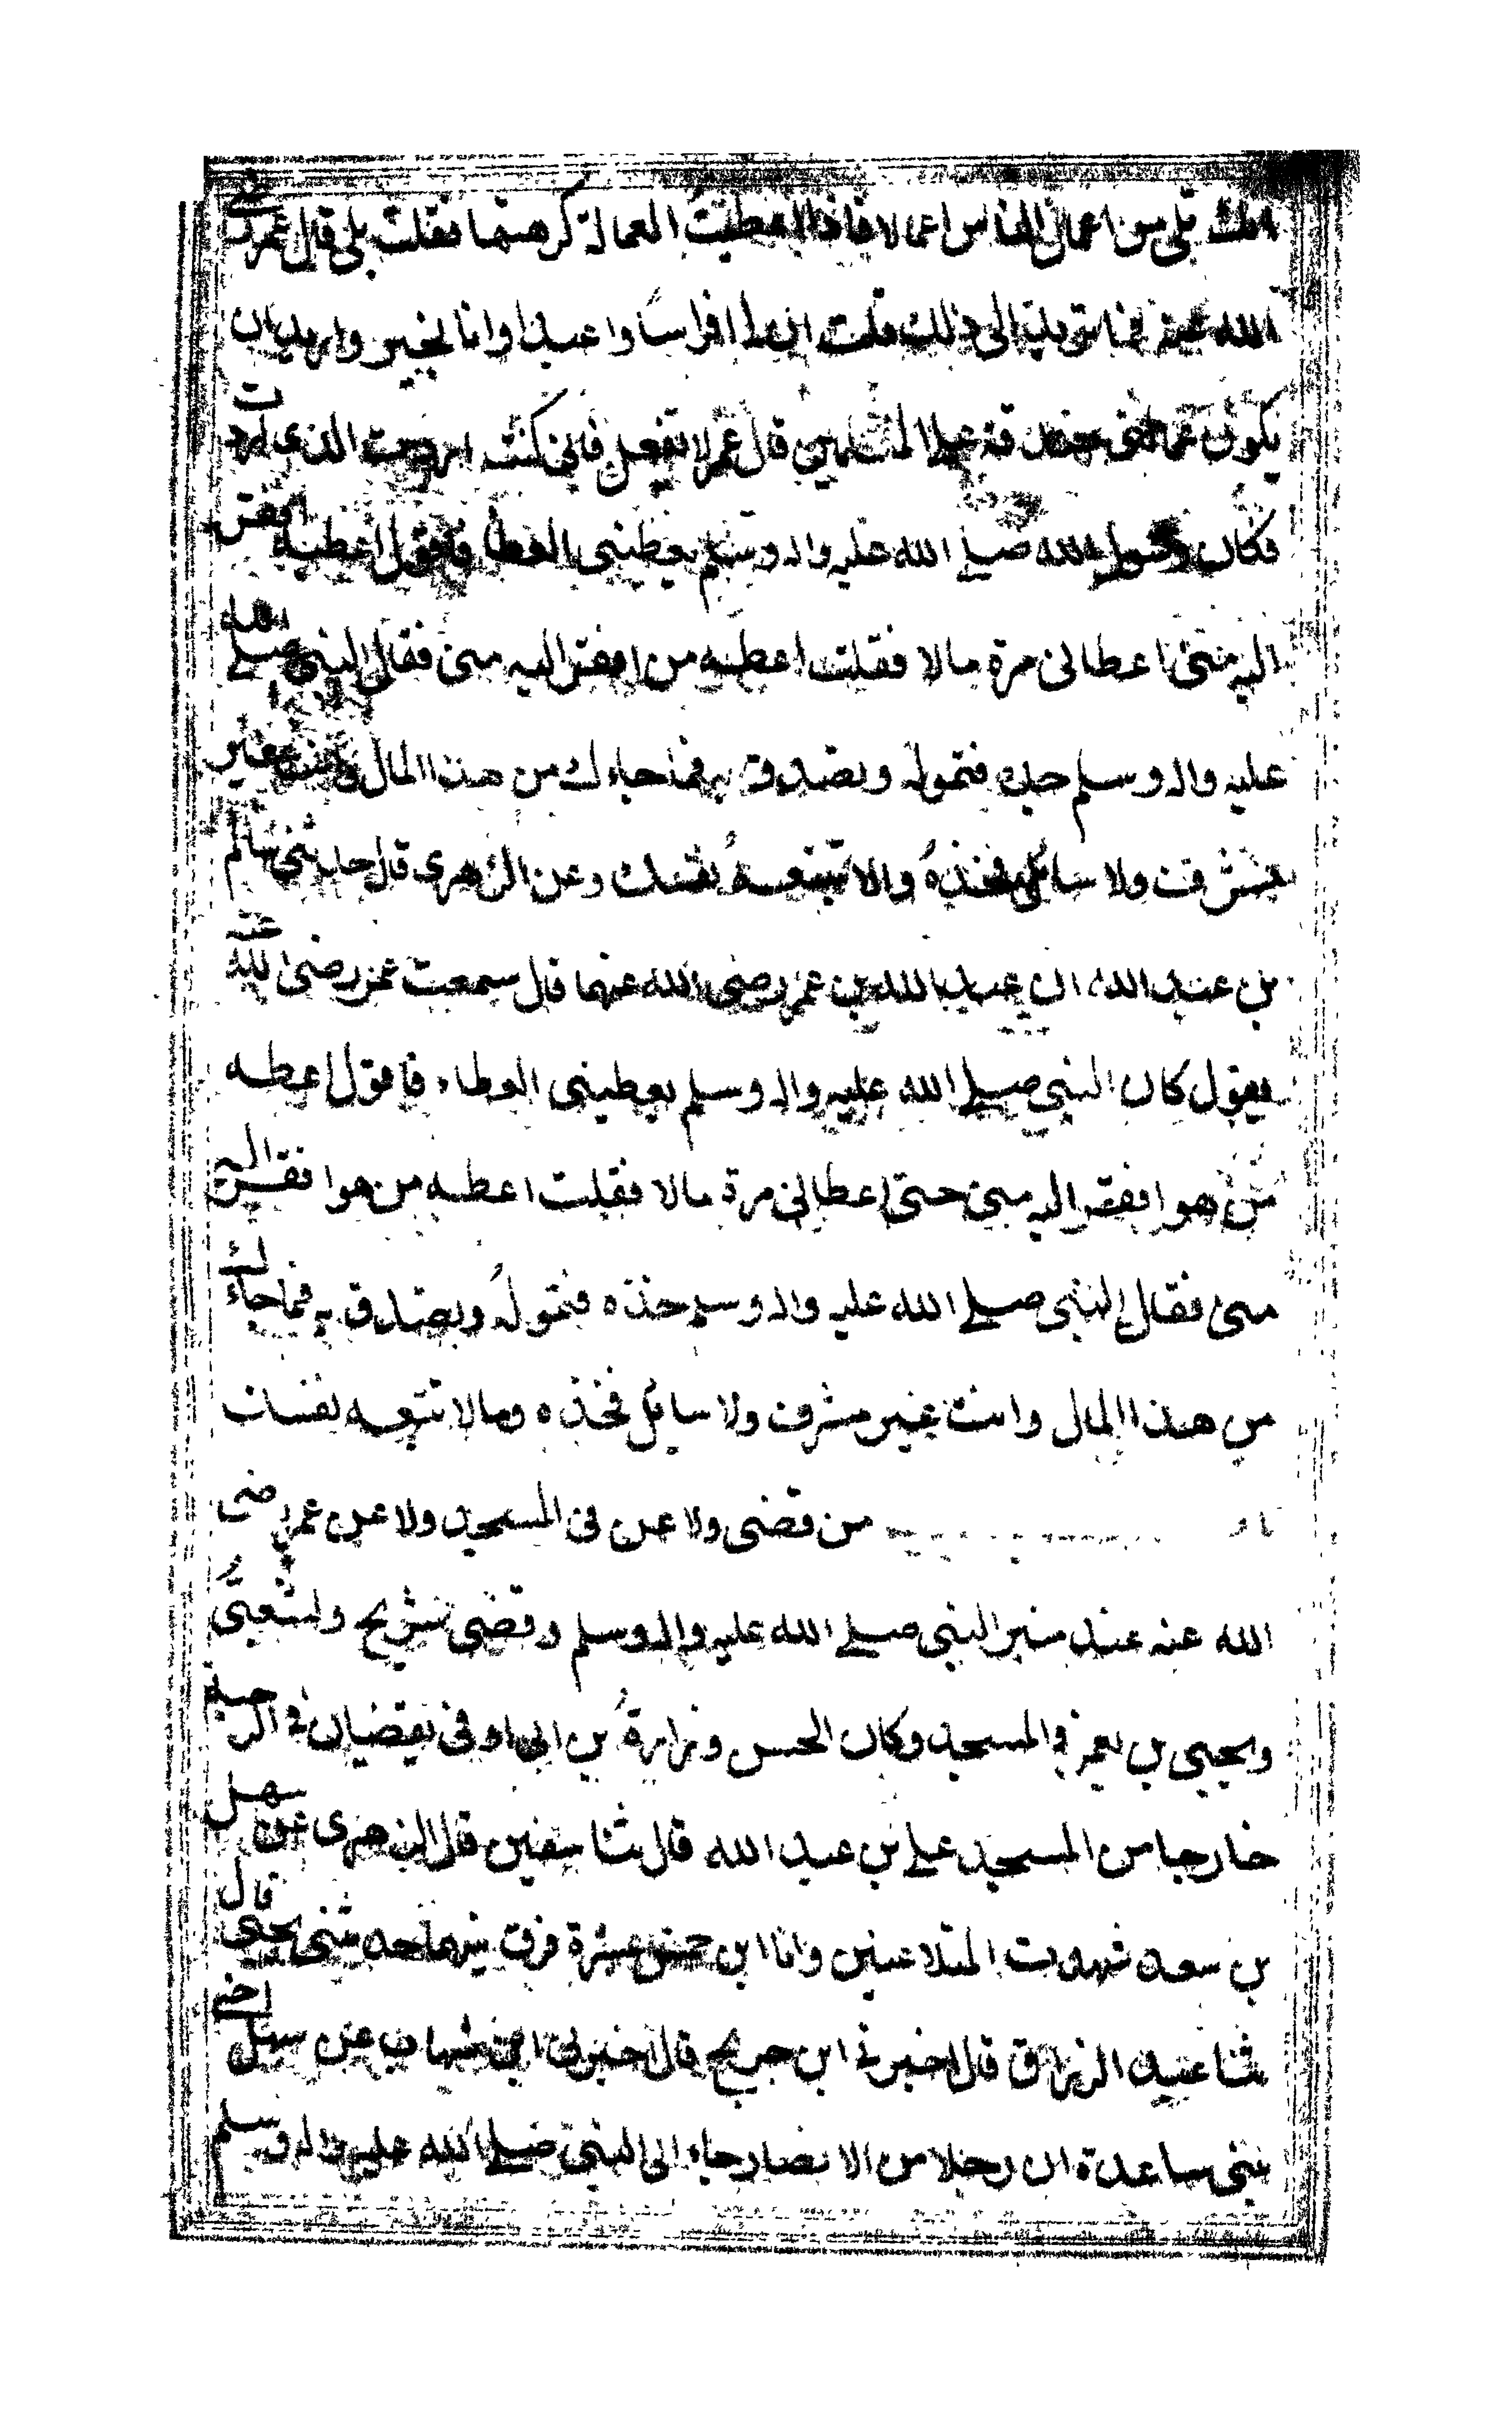 انك تلى من اعمال الناس اعمالا فاذا اعطيت العمالة كرهتها فقلت بلى قال عمر رضى
الله عنه فما تريد الى ذلك قلت ان لى افراسا واعبدا وانا بخير واريد ان
يكون عمالتى صدقة على المسلمين قال عمر لا تفعل فانى كنت اردت الذى اردت
فكان رسول الله صلى الله عليه واله وسلم يعطينى العطا فاقول اعطيه افقر
اليه منى اعطانى مرة مالا فقلت اعطه من افقر اليه منى فقال النبى صلى الله
عليه واله وسلم خذه فتموله وتصدق به فما جاءك من هذا المال وانت غير
مشرف ولا سائل فخذه والا تتبعه نفسك وعن الزهرى قال حدثنى سالم
بن عبد الله ان عبد الله بن عمر رضى الله عنهما قال سمعت عمر رضى الله عنه
يقول كان النبى صلى الله عليه واله وسلم يعطينى العطاء فاقول اعطه
من هو افقر اليه منى حتى اعطانى مرة مالا فقلت اعطه من هو افقر اليه
منى فقال النبى صلى الله عليه واله وسلم خذه فتموله وتصدق به فما جاءك
من هذا المال وانت غير مشرف ولا سايل فخذه ومالا تتبعه نفسك
من قضى ولاعن فى المسجد ولاعن عمر رضى
الله عنه عند منبر النبى صلى الله عليه واله وسلم وقضى شريح والشعبى
ويحيى بن يعمر فى المسجد وكان الحسن وزرارة بن ابى اوفى يقضيان فى الرحبة
خارجا من المسجد على بن عبد الله قال ثنا سفين قال الزهرى عن سهل
بن سعد شهدت المتلاعنين وانا ابن خمس عشرة فرق بينهما حدثنى يحيى قال
ثنا عبد الرزاق قال اخبرنى ابن جريج قال اخبرنى ابن شهاب عن سهل اخى
بنى ساعدة ان رجلا من الانصار جاء الى النبى صلى الله عليه واله وسلم